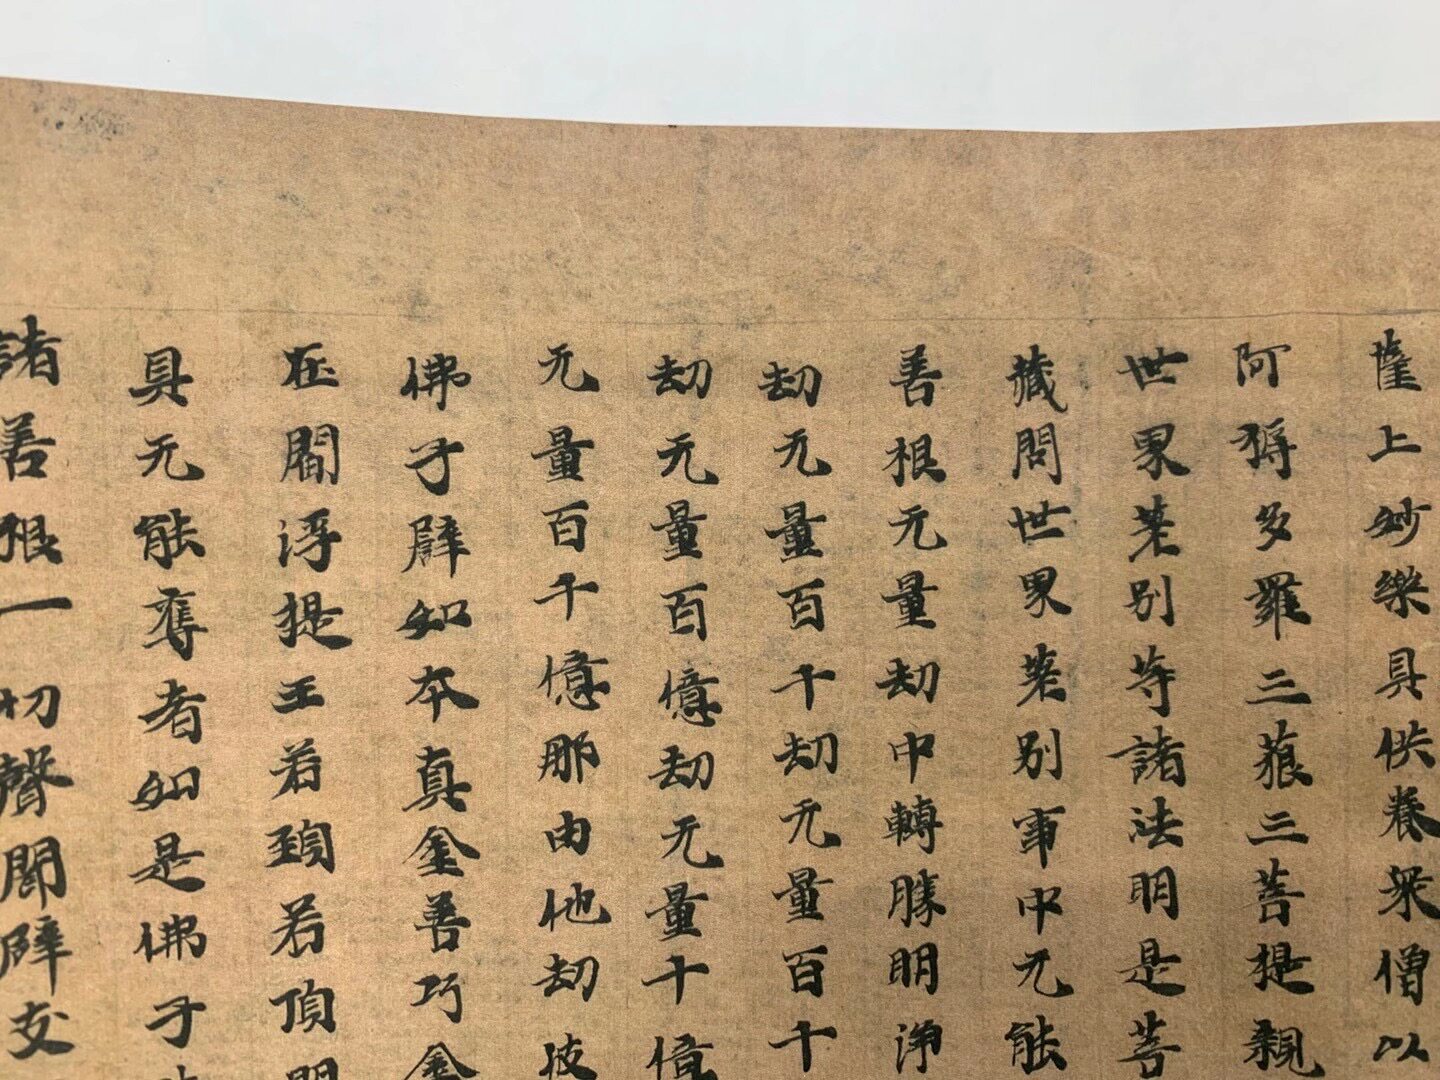 薩上妙樂具供養衆僧以
阿耨多羅三藐三菩提親
世界差别等諸法明是菩
藏問世界差别事中无能
善根无量劫中轉勝明淨
劫无量百千劫无量百千
劫无量百億劫无量十億
无量百千億那由他劫彼
佛子譬如本真金善巧金
在閻浮提王若頸若頂
具无能奪者如是佛子
諸善根一切聲聞辟支